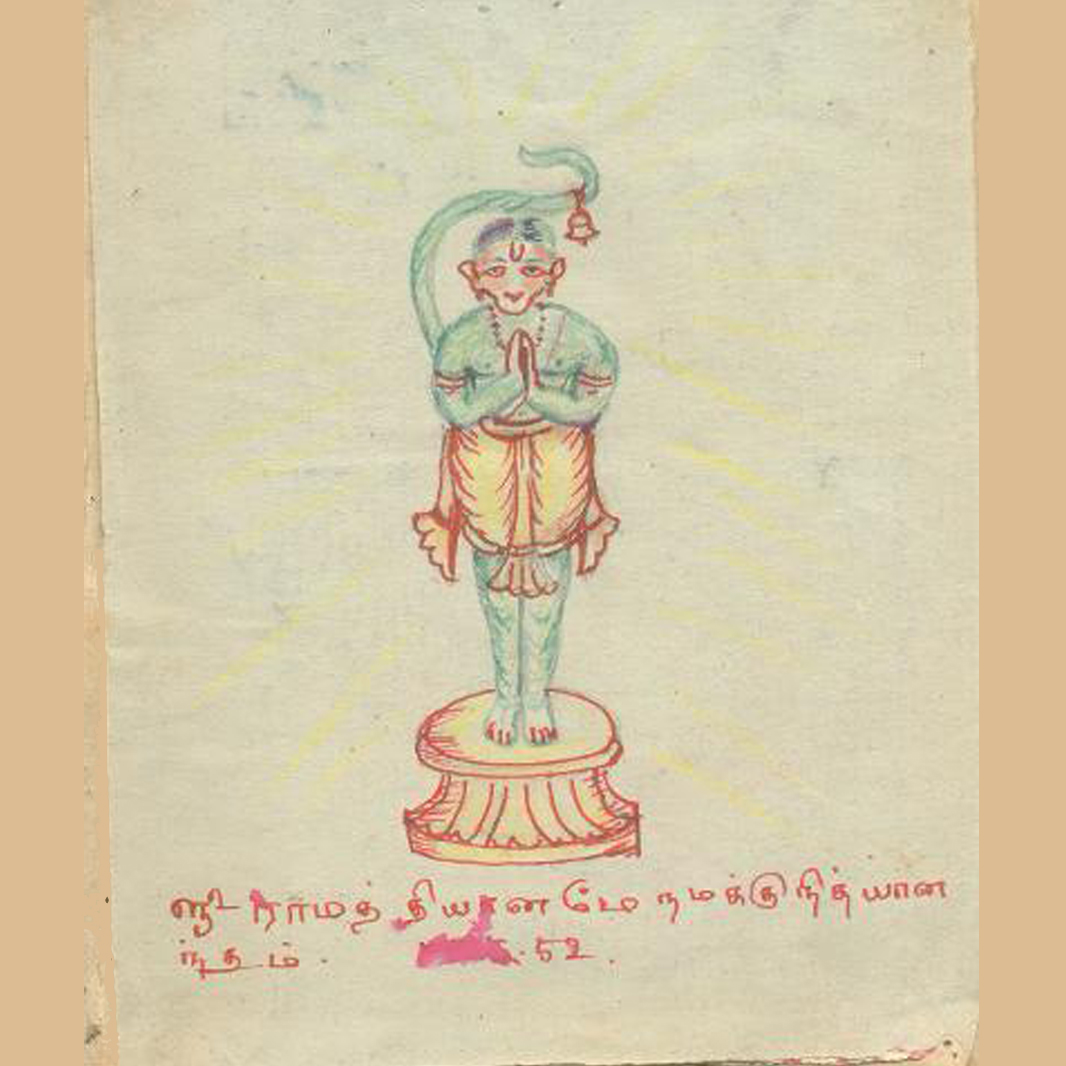 ஸ்ரீ ராமத் தியானமே நமக்கு நித்யான
ந்தம். 52.